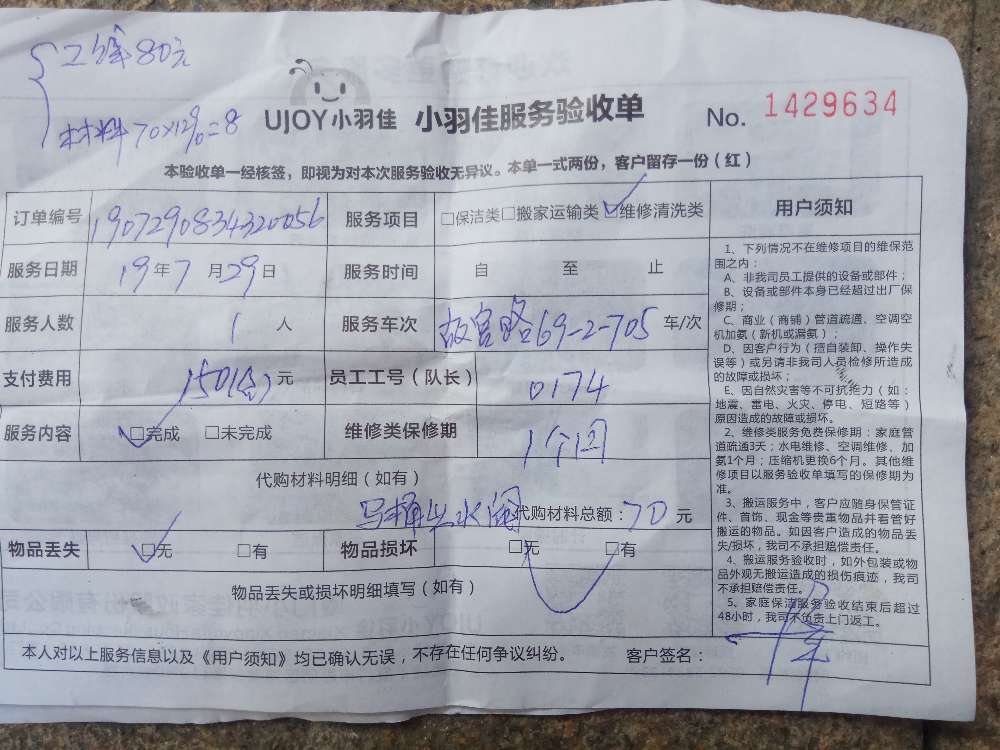 工钱80元
材料70×12%=8
UJOY小羽佳 小羽佳服务验收单 No. 1429634
本验收单一经核签，即视为对本次服务验收无异议。本单一式两份，客户留存一份（红）
订单编号 1907290834320056 服务项目 □保洁类□搬家运输类☑维修清洗类
服务日期 19年7月29日 服务时间 自 至 止
服务人数 1 人 服务车次 故宫路69-2-705 车/次
支付费用 150 元 员工工号（队长） 0174
服务内容 ☑完成 □未完成 维修类保修期 1个
代购材料明细（如有）
马桶 水阀 代购材料总额：70元
物品丢失 ☑无 □有 物品损坏 □无 □有
物品丢失或损坏明细填写（如有）
本人对以上服务信息以及《用户须知》均已确认无误，不存在任何争议纠纷。 客户签名：
用户须知
1、下列情况不在维修项目的维保范
围之内：
A、非我司员工提供的设备或部件；
B、设备或部件本身已经超过出厂保
修期；
C、商业（商铺）管道疏通、空调空
机加氨（新机或漏氨）；
D、因客户行为（擅自装卸、操作失
误等）或另请非我司人员检修所造成
的故障或损坏；
E、因自然灾害等不可抗拒力（如：
地震、雷电、火灾、停电、短路等）
原因造成的故障或损坏。
2、维修类服务免费保修期：家庭管
道疏通3天；水电维修、空调维修、加
氨1个月；压缩机更换6个月。其他维
修项目以服务验收单填写的保修期为
准。
3、搬运服务中，客户应随身保管证
件、首饰、现金等贵重物品并看管好
搬运的物品。如因客户造成的物品丢
失/损坏，我司不承担赔偿责任。
4、搬运服务验收时，如外包装或物
品外观无搬运造成的损伤痕迹，我司
不承担赔偿责任。
5、家庭保洁服务验收结束后超过
48小时，我司不负责上门返工。